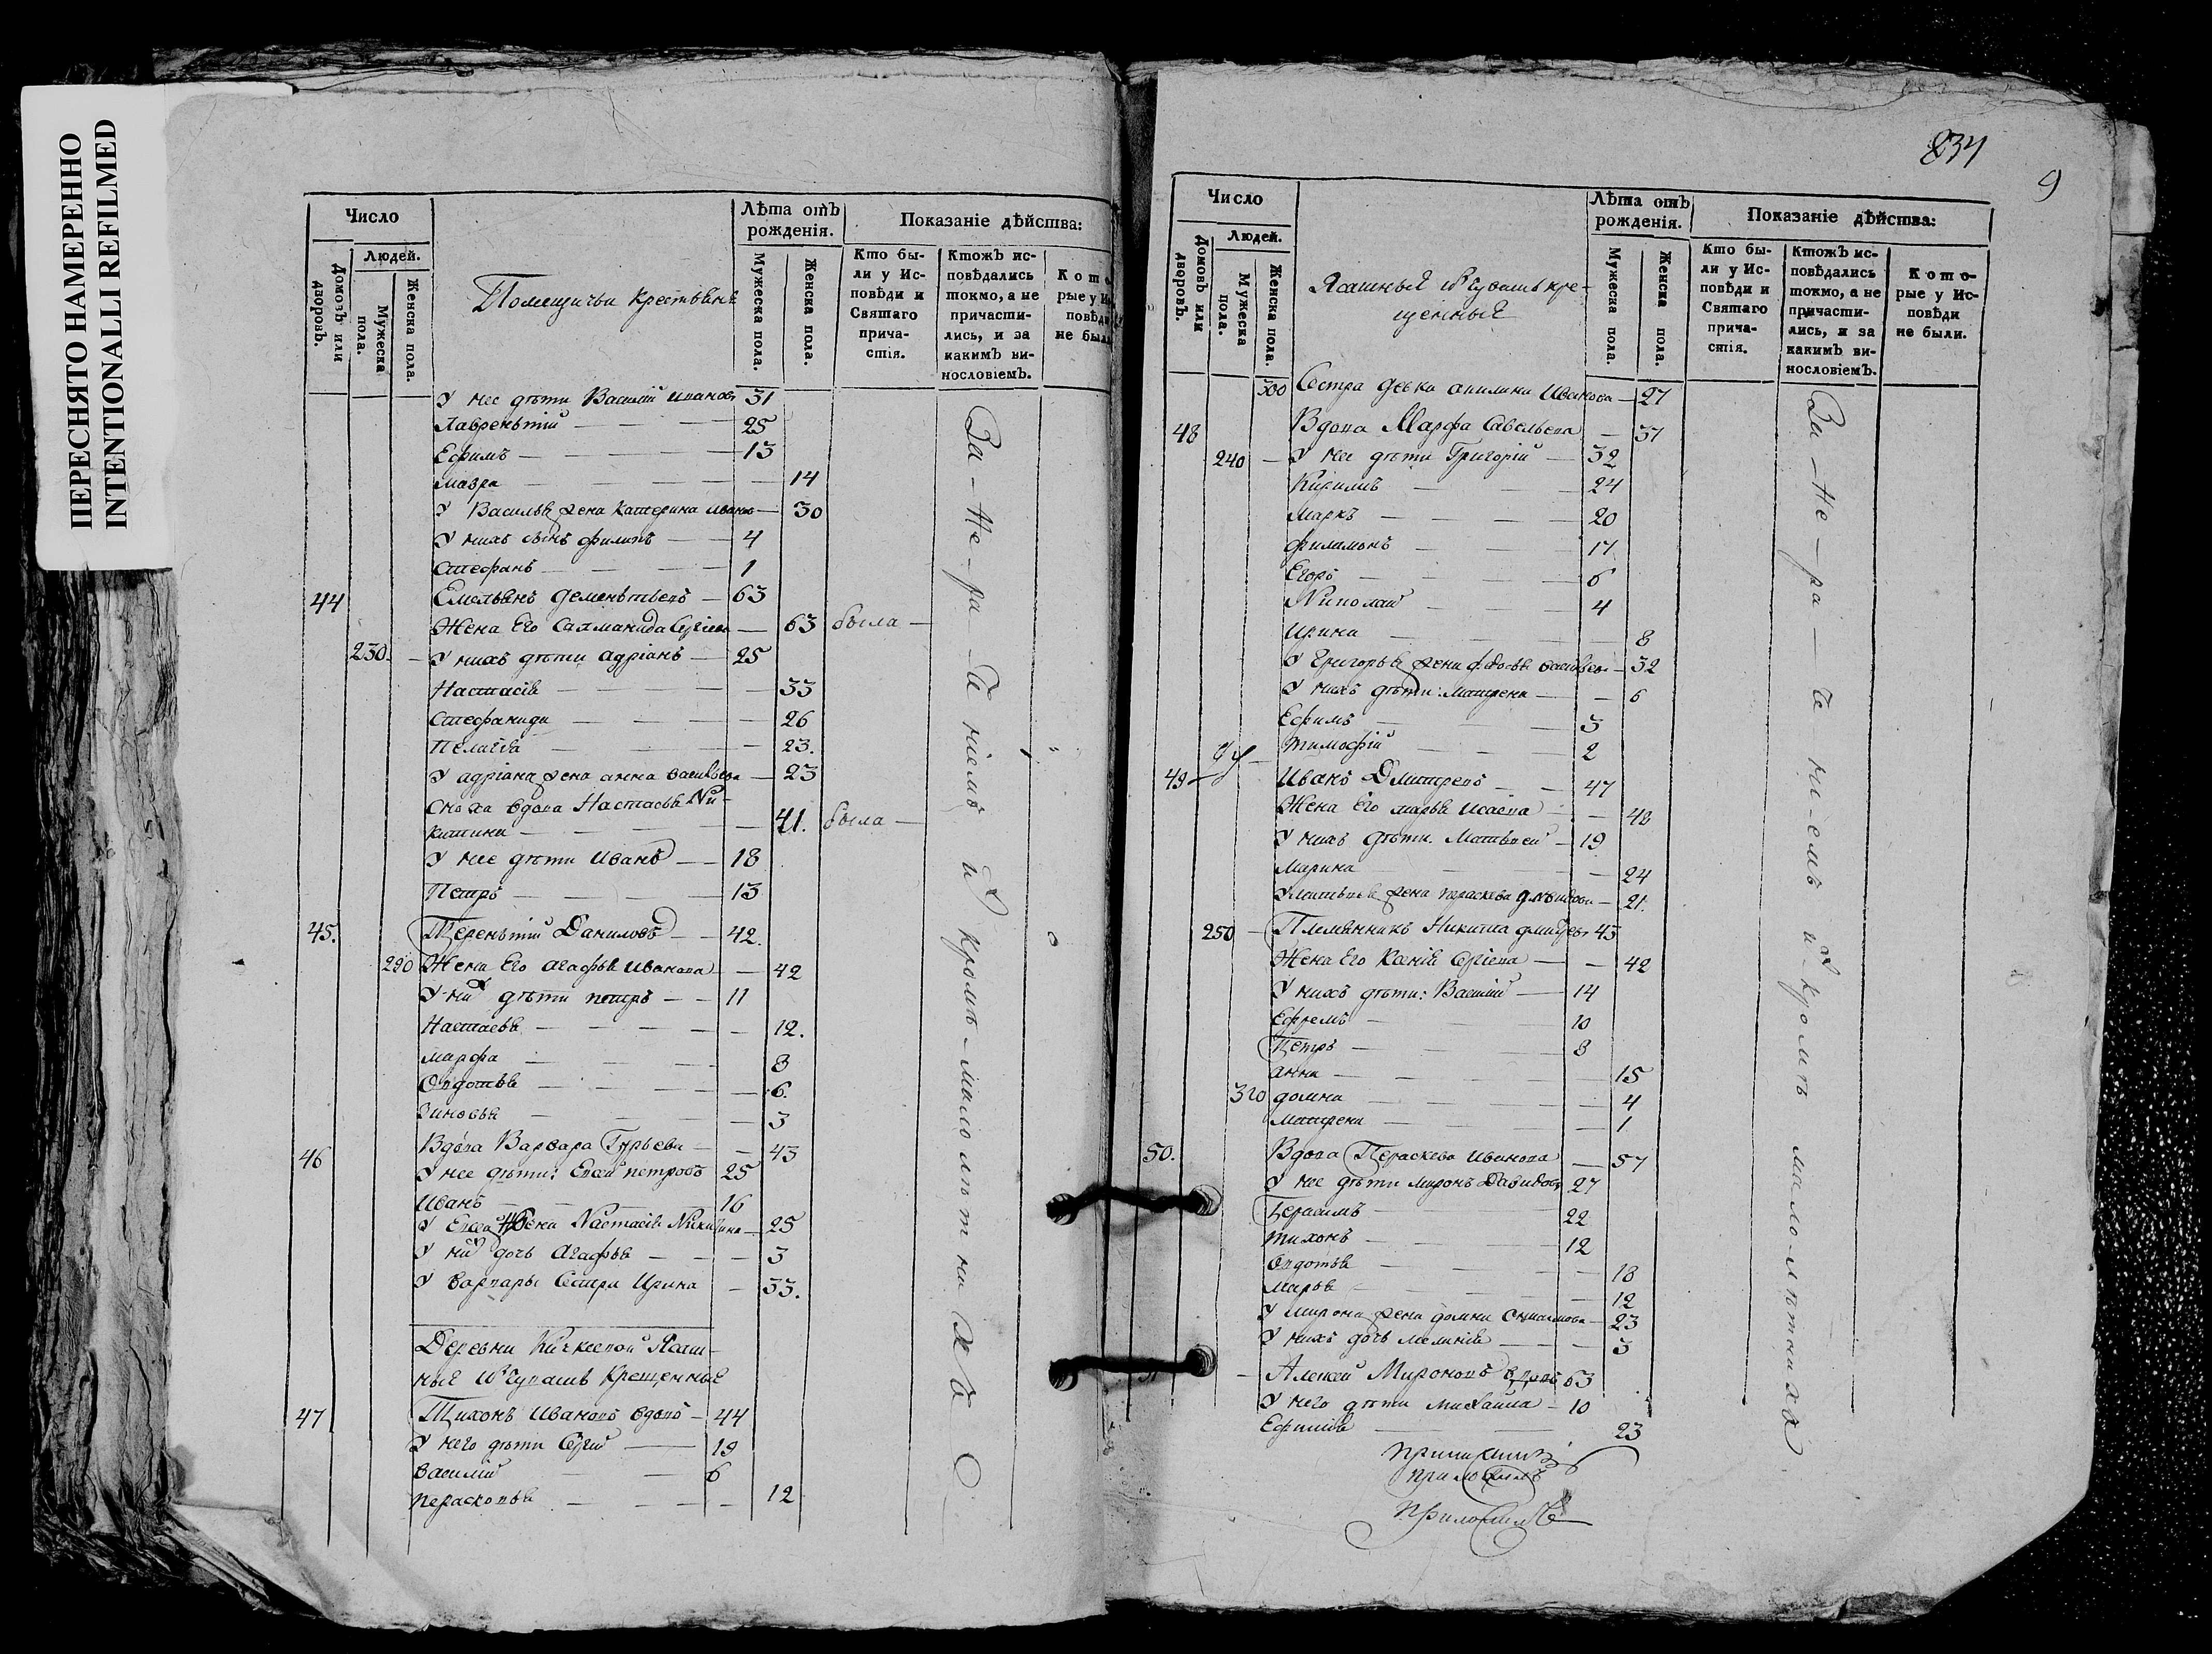 ПЕРЕСНЯТО НАМЕРЕННО
INTENTIONALLI REFILMED
Число
Людей.
Домовъ или дворовъ.
Мужеска пола.
Женска пола.
Помещичьи крестьяне
Лѣта отъ рожденія.
Мужеска пола.
Женска пола.
Показаніе дѣйства:
Кто были у Исповѣди и Святаго причастія.
Ктожъ исповѣдались токмо, а не причастились, и за какимъ винословіемъ.
Кото-
рые у Ис
повѣди
не были
У нее дѣти Василий Ивановъ 31
Лаврентий 25
Ефимъ 13
Мавра 14
У Василья жена Катерина 30
У нихъ сынъ Филипъ 4
Стефанъ 1
44 Емельянъ Дементьевъ 63
Жена Его Сергиева 63 была
230 У нихъ дѣти Адріанъ 25
Настасія 33
Стефанида 26
Пелагія 23.
У Адріана жена Анна Васильева 23
Сноха вдова Настасья Ни-
китина 41. была
У нее дѣти Иванъ 18
Петръ 13
45. Терентий Даниловъ 42.
290 Жена Его Агафья Иванова 42
У них дѣти Петръ 11
Настасья 12.
Марфа 8
Овдотья 6.
Зиновья 3
46 Вдова Варвара Гурьева 43
У нее дѣти: Евсей Петровъ 25
Иванъ 16
У Евсея жена Настасія Никитина 25
У них дочь Агафья 3
У Варвары Сестра Ирина 33.
Деревни Ясаш-
ные Чувашъ Крещенные
47 Тихонъ Ивановъ вдовъ 44
У него дѣти Сергий 19
Василий 6
Парасковья 12
За-не-ра-дѣніемъ и кромѣ-малолѣтнихъ
834
9
Число
Людей.
Домовъ или дворовъ.
Мужеска пола.
Женска пола.
Ясашные Чувашъ кре-
щенные
Лѣта отъ рожденія.
Мужеска пола.
Женска пола.
Показаніе дѣйства:
Кто были у Исповѣди и Святаго причастія.
Ктожъ исповѣдались токмо, а не причастились, и за какимъ винословіемъ.
Которые у Исповѣди не были.
300 Сестра девка Акилина Иванова 27
48 Вдова Марфа Савельева 37
240 У нее дѣти Григорий 32
Кирилъ 24
Маркъ 20
Филимонъ 17
Егоръ 6
Николай 4
Ирина 8
У Григорья жена Федосья Васильева 32
У нихъ дѣти: Матрена 6
Ефимъ 3
Тимофій 2
49 Иванъ Дмитревъ 47
Жена Его Марья Исаева 48
У нихъ дѣти. Матьвей 19
Марина 24
У Матьвея жена Параскева 21.
250 Племянникъ Никита 43
Жена Его Ксенія Сергіева 42
У нихъ дѣти: Василий 14
Ефремъ 10
Петръ 8
Анна 15
310 Домна 4
Матрена 1
50. Вдова Параскева Иванова 57
У нее дѣти Миронъ Давидовъ 27
Герасимъ 22
Тихонъ 12
Овдотья 18
Марья 12
У Мирона жена Домна 23
У нихъ дочь Меланія 3
Алексей Мироновъ вдовъ 63
У него дѣти Михаила 10
Ефимія 23
За-не-ра-дѣ-ні-емъ и кромѣ мало-лѣтнихъ